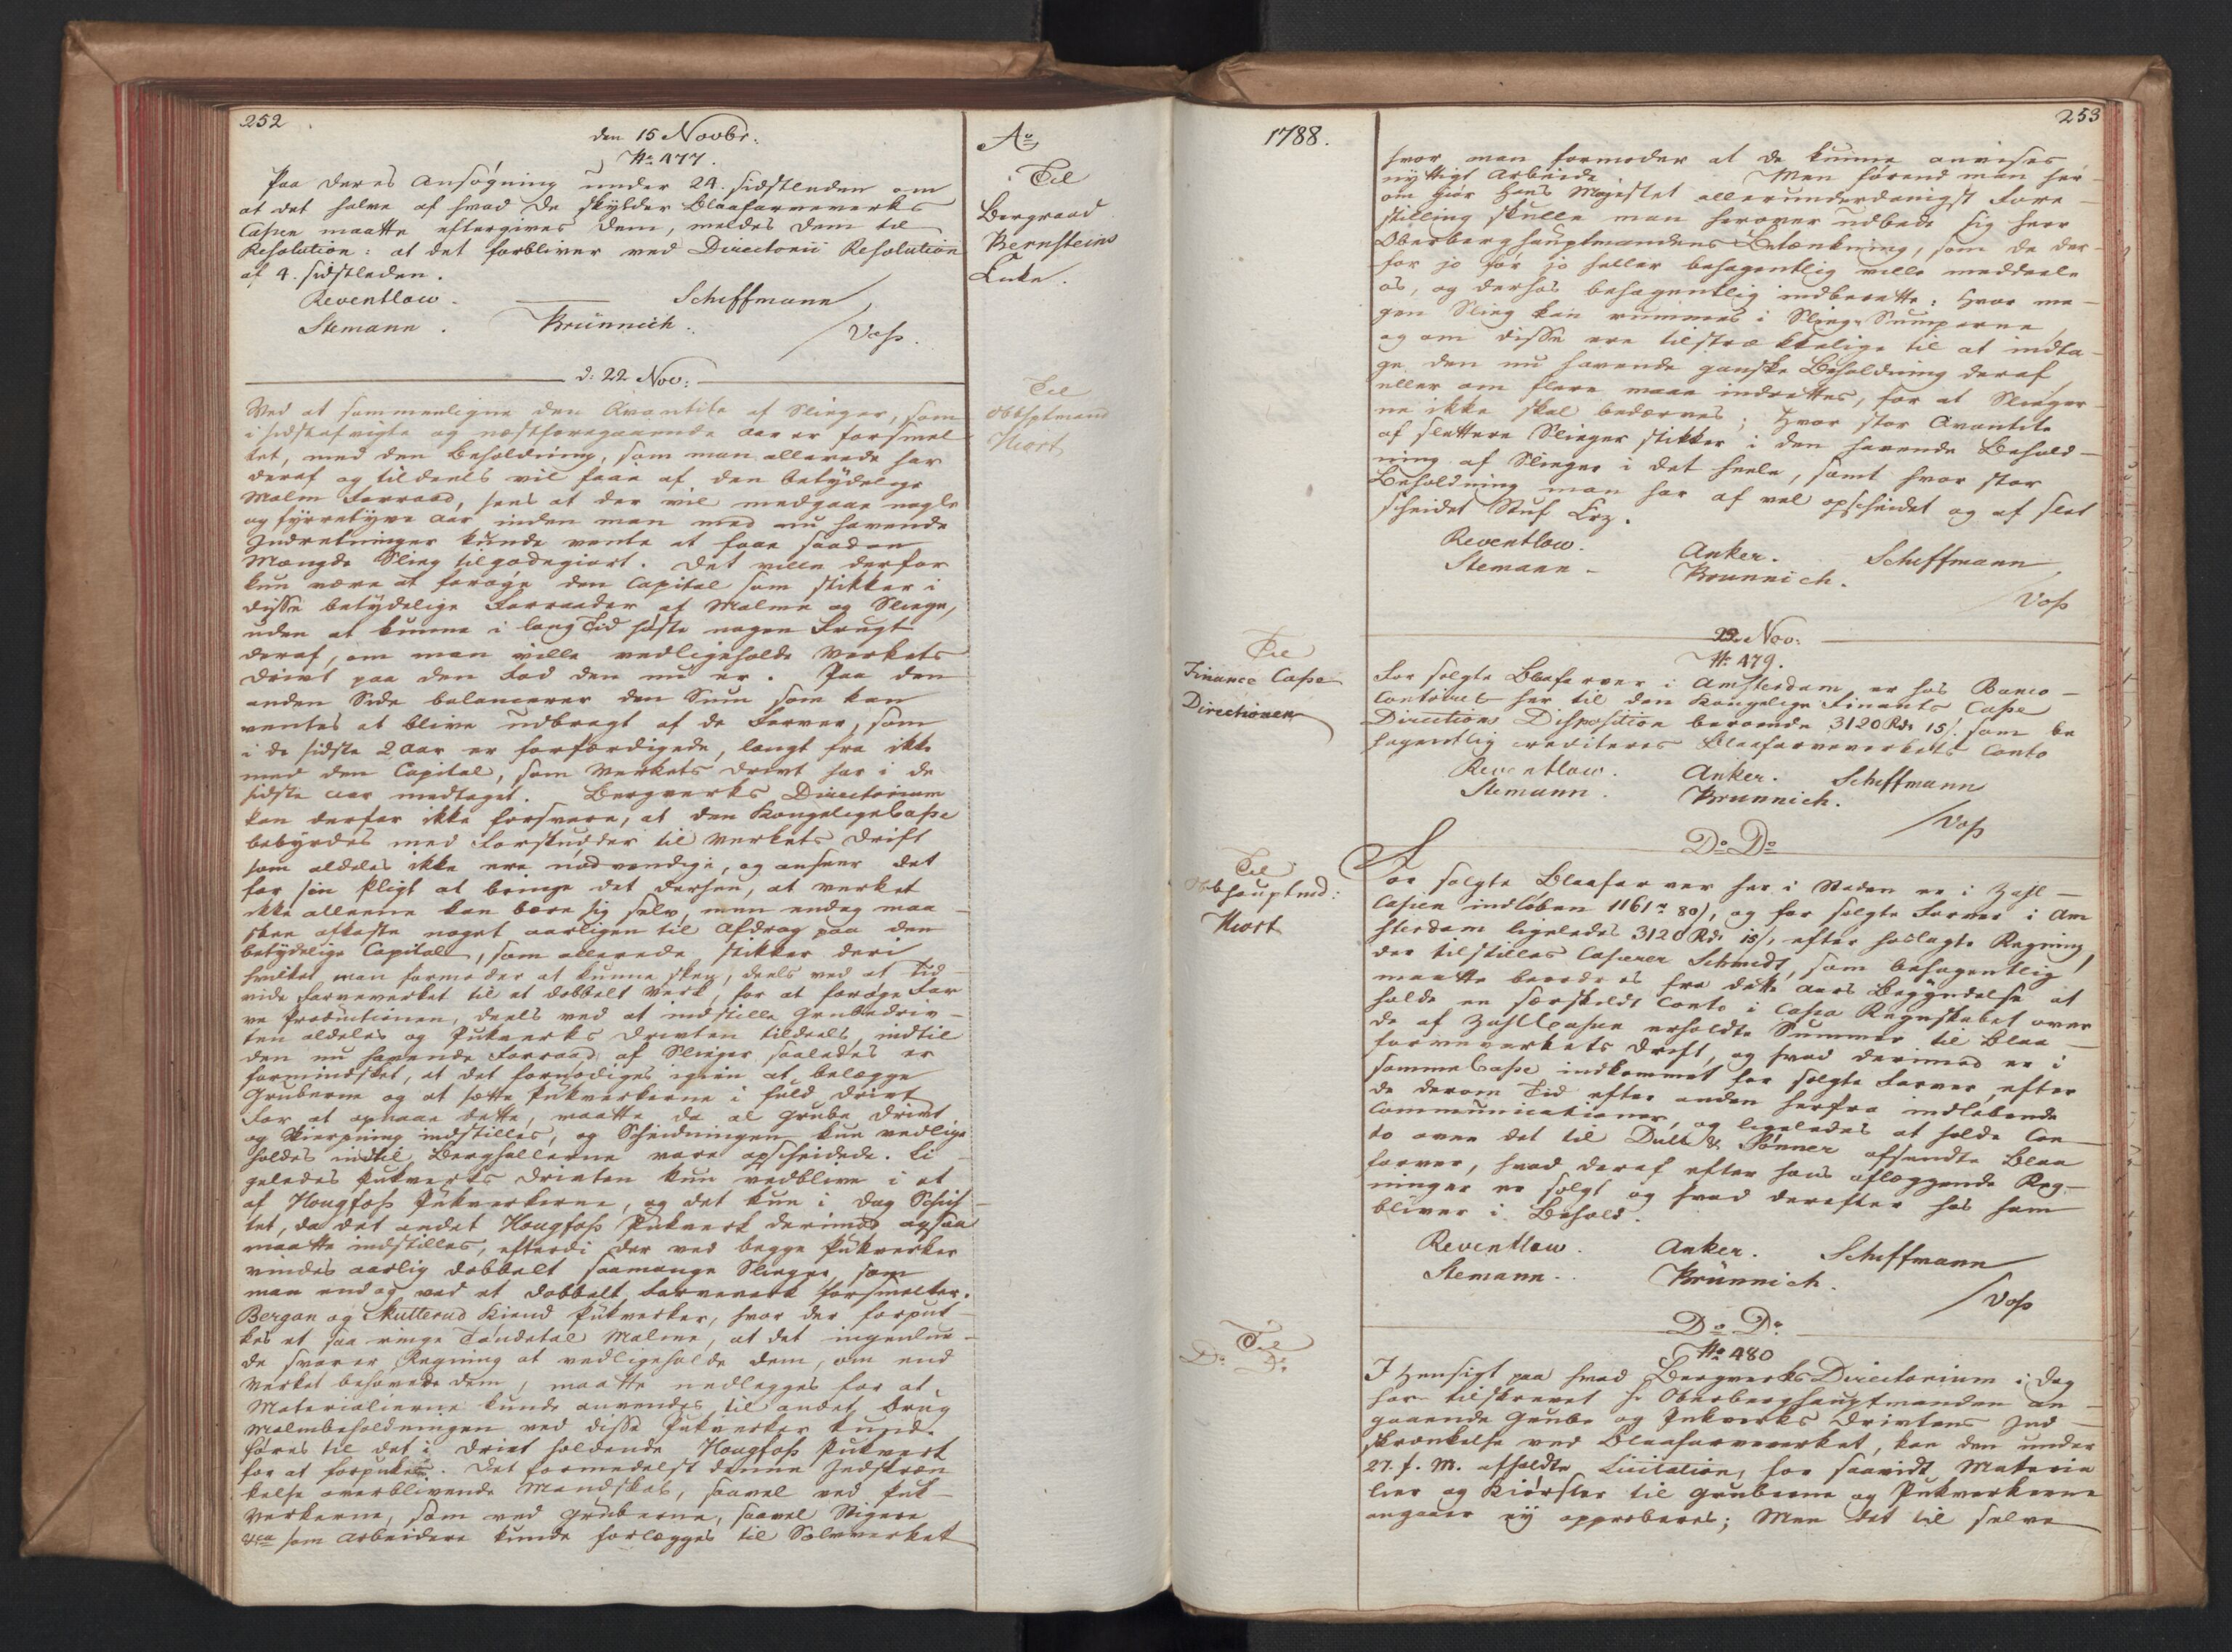 252
den 15 Novbr:
No 477.
Paa deres Ansøgning under 24. sidstleden om
at det halve af hvad De skylder Blaafarveverks
Cassen maatte eftergives Dem, meldes Dem til
Resolution: at det forbliver ved Directorii Resolution
af 4. sidstleden.
Reventlow. Scheffmann
Stemann. Brünnich.
Voss.
Ao
Til
Bergraad
Bernsteins
Enke.
d: 22 Nov:
Til
Obbhptmand
Hiort
Ved at sammenligne den Qvantite af Slieger, som
i sidstafvigte og næstforegaaende Aar er forsmel
tet, med den Beholdning, som man allerede har
deraf og tildeels vil faae af den betydelige
Malm Forraad, sees at der vil medgaae nogle
og fyrretyve Aar inden man med nu havende
Indretninger kunde vente at faae saadan
Mængde Slieg tilgodegiort. Det ville derfor
kun være at forøge den Capital som stikker i
disse betydelige Forraader af Malme og Sliege,
uden at kunne i lang Tid høste nogen Frugt
deraf, om man ville vedligeholde Verkets
Drivt paa den Fod den nu er. Paa den
anden Side balancerer den Sum som kan
ventes at blive udbragt af de Farver, som
i de sidste 2 Aar er forfærdigede, langt fra ikke
med den Capital, som Verkets Drivt har i de
sidste Aar medtaget. Bergverks Directorium
kan derfor ikke forsvare, at den Kongelige Casse
bebyrdes med Forskudder til Verkets Drift
som aldeles ikke ere nødvendige, og anseer det
for sin Pligt at bringe det derhen, at Verket
ikke alleene kan bære sig selv, men endog maa-
skee afkaste noget aarligen til Afdrag paa den
betydelige Capital, som allerede stikker deri
hvilket man formoder at kunne skee, deels ved at Ud-
vide Farveverket til et dobbelt Verk, for at forøge Far
ve Productionen, deels ved at indstille Grubedriv-
ten aldeles og Pukverks Drivten tildeels, indtil
den nu havende Forraad af Slieger saaledes er
formindsket, at det fornødiges igien at belægge
Gruberne og at sætte Pukverkerne i fuld Drivt
For at opnaae dette, maatte da al Grube Drivt
og Skierpning indstilles, og Scheidningen kun vedlige
holdes indtil Berghallerne vare opscheidede. Li-
geledes Pukverks Drivten kun vedblive i et
af Hougfoss Pukverkerne, og det kun i Dag Schif-
tet, da det andet Hougfoss Pukverk derimod ogsaa
maatte indstilles, efterdi der ved begge Pukverker
vindes aarlig dobbelt saamange Slieger, som
man endog ved et dobbelt Farveverk forsmelter.
Bergan og Skutterud Kiend Pukverker, hvor der forpuk
kes et saa ringe Tøndetal Malme, at det ingenlun-
de svarer Regning at vedligeholde dem, om end
Verket behøvede dem, maatte nedlegges for at
Materialierne kunde anvendes til andet Brug
Malmbeholdningen ved disse Pukverker kunde
føres til det i Drivt holdende Hougfoss Pukverk
for at forpukkes. Det formedelst denne Indskræn
kelse overblivende Mandskab, saavel ved Puk-
verkerne, som ved Gruberne, saavel Stigere
som Arbeidere kunde forlægges til Sølvverket
1788.
253
hvor man formoder at de kunne anvises
nyttigt Arbeide. Men førend man her-
om giør Hans Majestet allerunderdanigst Fore-
stilling skulle man herover udbede sig Herr
Oberberghauptmandens Betænkning, som De der-
for jo før jo heller behagentlig ville meddeele
os, og derhos behagentlig indberette: Hvor me-
gen Slieg kan rummes i Sliege Sumperne
og om disse ere tilstrækkelige til at indta-
ge den nu havende ganske Beholdning deraf
eller om flere maae indrettes, for at Slieger
ne ikke skal bedærves; Hvor stor Qvantite
af slettere Slieger stikker i den havende Behold-
ning af Slieger i det heele, samt hvor stor
Beholdning man har af vel opscheidet og af slet
scheidet Stuf Erz.
Reventlow. Anker. Scheffmann
Stemann. Brunnich.
Voss
22. Nov:
No 479.
Til
Finance Casse
Directionen
For solgte Blaafarver i Amsterdam er hos Banco-
Contoiret her til den Kongelige Finants Casse
Directions Disposition beroende 3120 Rdr 15 s. som be
hagentlig crediteres Blaafarveverkets Conto
Reventlow. Anker. Scheffmann
Stemann. Brunnich.
Voss
Do Do
Til
Obbhauptmd:
Hiort
For solgte Blaafarver her i Staden er i Zahl-
Cassen indløben 1161 r 80 s, og for solgte Farver i Am
sterdam ligeledes 3120 Rdr 15 s, efter hoslagte Regning,
der tilstilles Casserer Schmidt, som behagentlig
maatte beordres fra dette Aars Begyndelse at
holde en særskildt Conto i Cassa Regnskabet over
de af Zahl Cassen erholdte Summer til Blaa-
farveverkets Drift, og hvad derimod er i
samme Casse indkommet for solgte Farver, efter
de derom Tid efter anden herfra indløbende
Communicationer, og ligeledes at holde Con
to over det til Dull & Sønner afsendte Blaa
farver, hvad deraf efter hans aflæggende Reg-
ninger er solgt og hvad derefter hos ham
bliver i Behold.
Reventlow. Anker. Scheffmann
Stemann. Brünnich.
Voss
Do Do
No 480
Til
Do Do
I Hensigt paa hvad Bergverks Directorium i Dag
har tilskrevet Hr Oberberghauptmanden an-
gaaende Grube og Pukverks Drivtens Ind-
skrænkelse ved Blaafarveverket, kan den under
27. f. M. afholdte Licitation, for saavidt Materia
lier og Kiørsler til Gruberne og Pukverkerne
angaaer ey approberes; Men det til selve